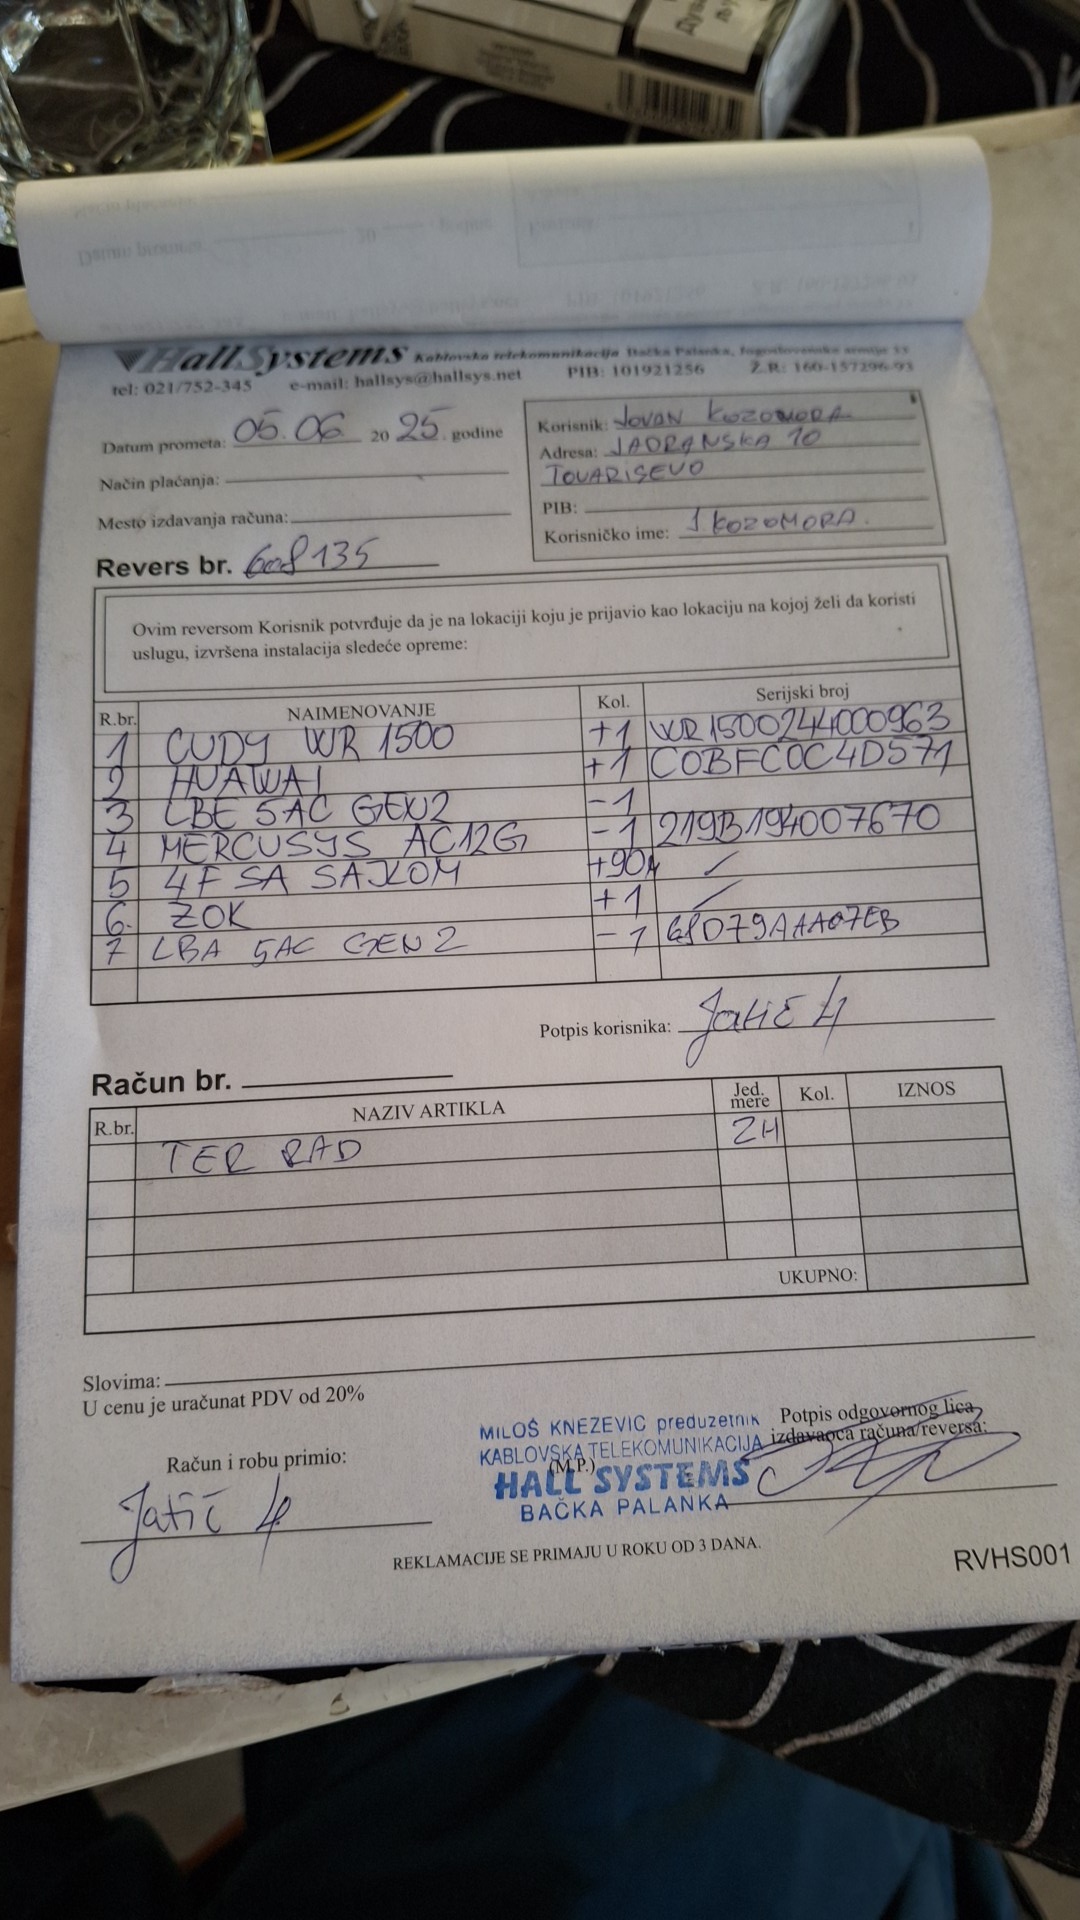 HallSystems Kablovska telekomunikacija Bačka Palanka, Jugoslovenske armije 55
tel: 021/752-345 e-mail: hallsys@hallsys.net PIB: 101921256 Ž.R.: 160-157296-93
Datum prometa: 05.06 20 25. godine
Način plaćanja:
Mesto izdavanja računa:
Revers br. 608135
Korisnik: JOVAN KOZOMORA
Adresa: JADRANSKA 10
TOVARISEVO
PIB:
Korisničko ime: JKOZOMORA.
Ovim reversom Korisnik potvrđuje da je na lokaciji koju je prijavio kao lokaciju na kojoj želi da koristi
uslugu, izvršena instalacija sledeće opreme:
R.br. NAIMENOVANJE Kol. Serijski broj
1 CUDY WR 1500 +1 WR1500244000963
2 HUAWAI +1 COBFC0C4D571
3 LBE 5AC GEN2 -1
4 MERCUSYS AC12G -1 219B194007670
5 4F SA SAJLOM +90m /
6. ZOK +1 /
7 LBA 5AC GEN2 -1 68D79AAA07EB
Potpis korisnika: Jatić
Račun br.
R.br. NAZIV ARTIKLA Jed. mere Kol. IZNOS
TER RAD 2H
UKUPNO:
Slovima:
U cenu je uračunat PDV od 20%
Račun i robu primio:
Jatić
MILOŠ KNEZEVIC preduzetnik
KABLOVSKA TELEKOMUNIKACIJA
(M.P.)
HALL SYSTEMS
BAČKA PALANKA
Potpis odgovornog lica
izdavaoca računa/reversa:
REKLAMACIJE SE PRIMAJU U ROKU OD 3 DANA.
RVHS001